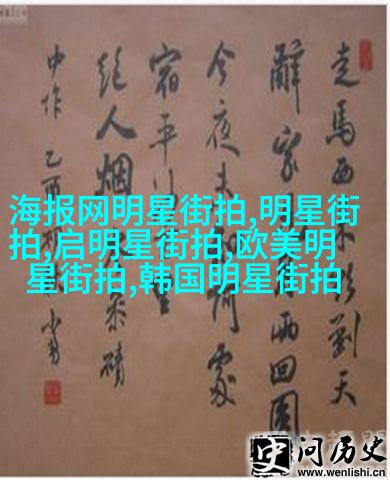 走馬西来欲到天
辭家月两回圓
今夜未何處
宿平
絕人烟岑参磧
中作 乙酉
海报网明星街拍,明星街
拍,启明星街拍,欧美明
星街拍,韩国明星街拍
史问历史
www.wenlishi.cn